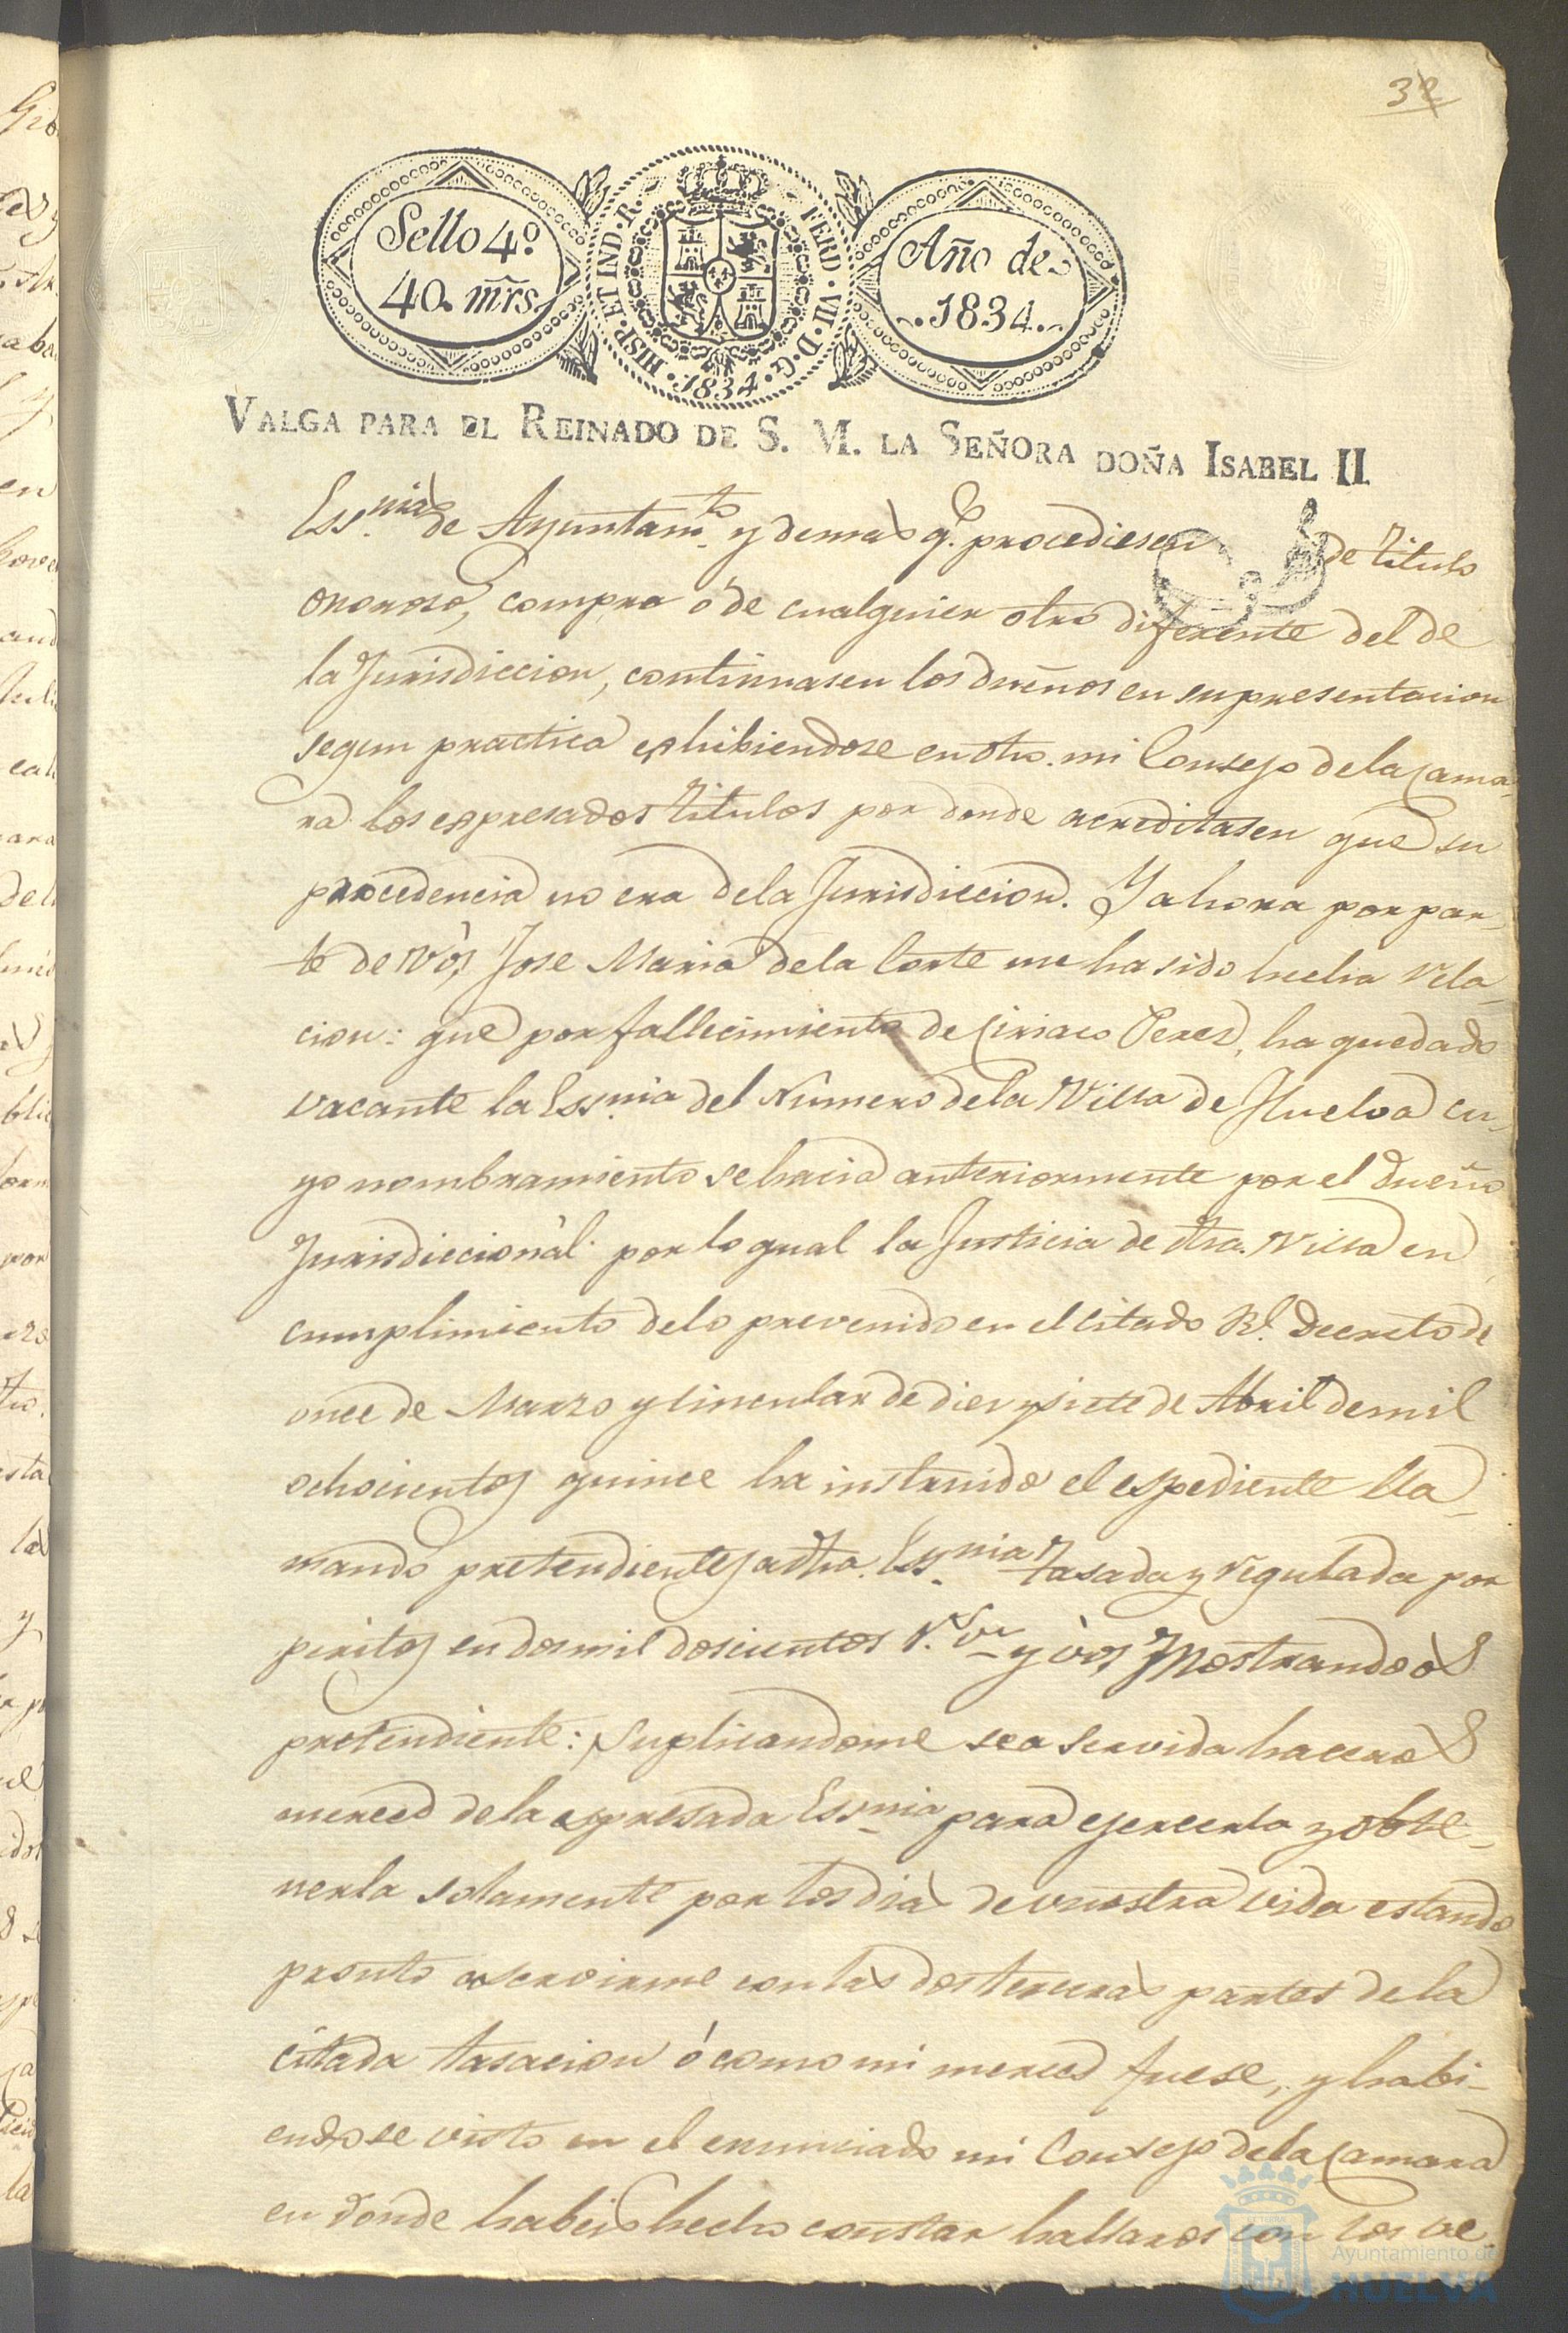 32
Sello 4º
40. mrs.
HISP. ET IND. R.
FERD. VII. D. G.
1834.
Año de
1834.
VALGA PARA EL REINADO DE S. M. LA SEÑORA DOÑA ISABEL II
Essnias de Ayuntamto y demas q.e procediesen de titulo
oneroso, compra ó de cualquier otro diferente del de
la Jurisdiccion, continuasen los dueños en su presentacion
segun practica exhibiendose en dho. mi Consejo de la Cama-
ra los expresados titulos por donde acreditasen que su
procedencia no era de la Jurisdiccion. Y ahora por par-
te de vos, Jose Maria de la Corte me ha sido hecha rela-
cion: que por fallecimiento de Ciriaco Perez, ha quedado
vacante la Essnia del Número de la Villa de Huelva cu-
yo nombramiento se hacia anteriormente por el dueño
Jurisdiccional: por lo qual la Justicia de dha. Villa en
cumplimiento de lo prevenido en el citado Rl. Decreto de
once de Marzo y Circular de diez y siete de Abril de mil
ochocientos quince ha instruido el espediente lla-
mando pretendientes a dha. Essnia tasada y regulada por
peritos en dos mil doscientos r.s vn y vos mostrandoos
pretendiente: suplicandome sea servida haceros
merced de la espresada Essnia para ejercerla y obte-
nerla solamente por los dias de vuestra vida estando
pronto a servirme con las dos terceras partes de la
citada tasacion ó como mi merced fuese, y habi-
endose visto en el enunciado mi Consejo de la Camara
en donde habeis hecho constar hallaros con los re
Ayuntamiento de
HUELVA